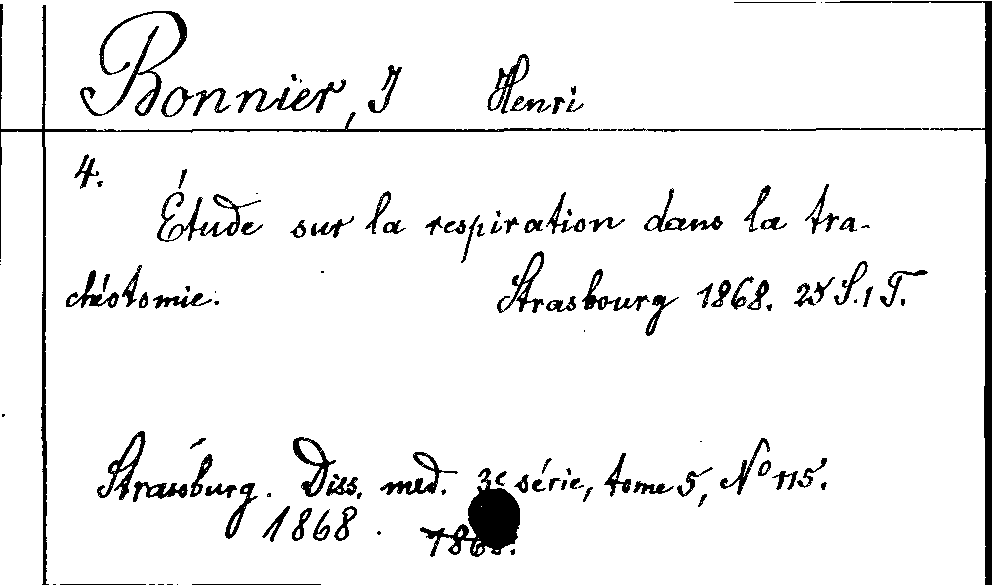 Bonnier, J Henri
4.
Étude sur la respiration dans la tra-
chéotomie. Strasbourg 1868. 25 S. 1 T.
Strassburg. Diss. med. 3e série, tome 5, No 115.
1868.